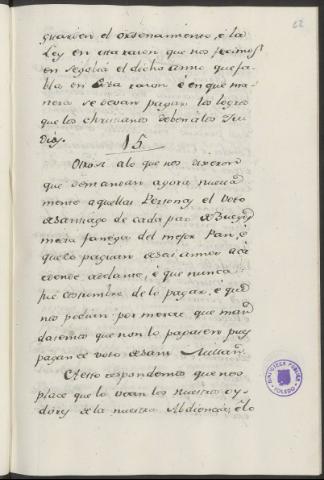 62
guarden el ordenamiento, é la
Ley en esta razon que nos fecimos
en Segobia el dicho anno que fa-
bla en esta razon é en que ma-
nera se devan pagar los logros
que los christianos deben á los Ju-
dios.
15
Otrosi alo que nos dixeron
que demandan agora nueva
mente aquellas Personas el voto
de Santiago de cada par de Bueyes
media fanega del mejor Pan, é
que lo paguan de seis annos acá
é dende adelante, é que nunca
fue costumbre de lo pagar, é que
nos pedian por merced que man
dasemos que non lo pagasen pues
pagan el voto de Sant Millan.
A esto respondemos que nos
place que lo vean los nuestros oy-
dores de la nuestra Abdiencia, é lo
BIBLIOTECA PUBLICA TOLEDO